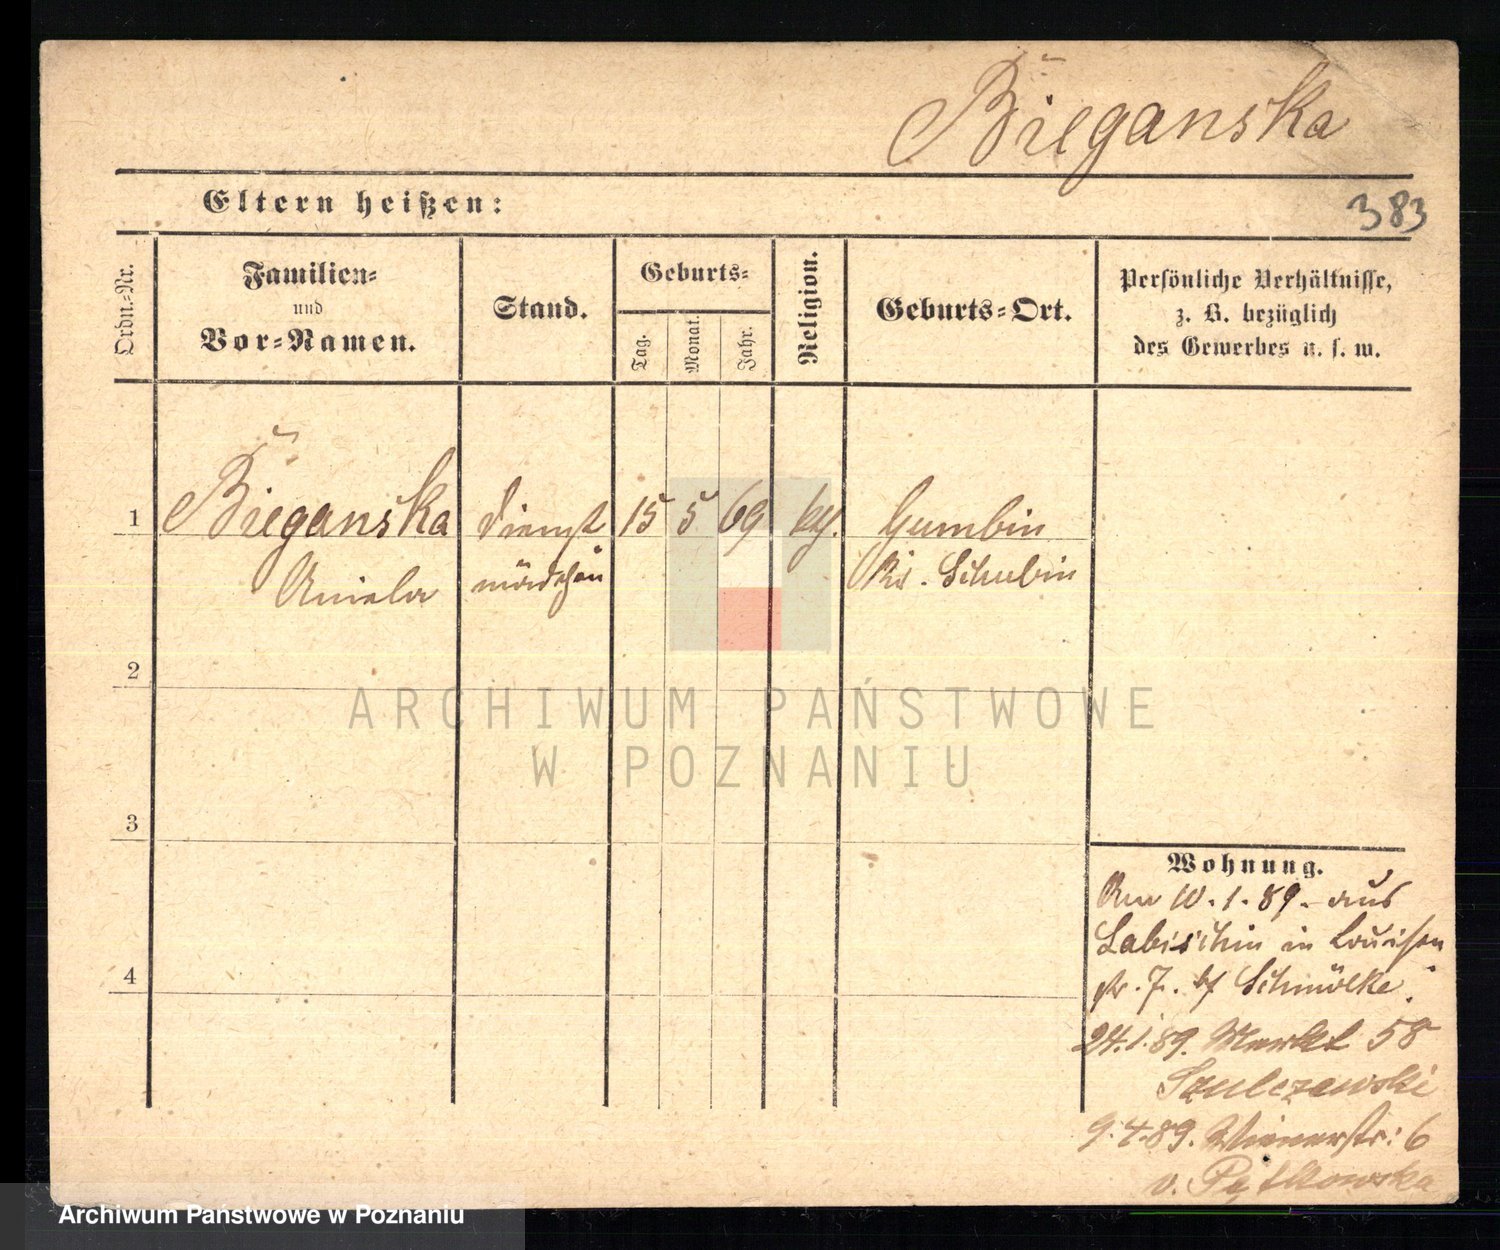 Bieganska
383
Eltern heißen:
Ordn.-Nr.
Familien-
und
Vor-Namen.
Stand.
Geburts-
Tag.
Monat.
Jahr.
Religion.
Geburts-Ort.
Persönliche Verhältnisse,
z. B. bezüglich
des Gewerbes u. s. w.
1
Bieganska
Aniela
Dienst
mädchen
15 5 69
Gumbin
Kr. Schubin
2
3
4
Wohnung.
Am 10.1.89. aus
Labischin in Louisen
str. 7. bei Schmölke.
24.1.89. Markt 58
Szulczewski
9.4.89. Wienerstr: 6
v. Pętkowska
ARCHIWUM PAŃSTWOWE
W POZNANIU
Archiwum Państwowe w Poznaniu